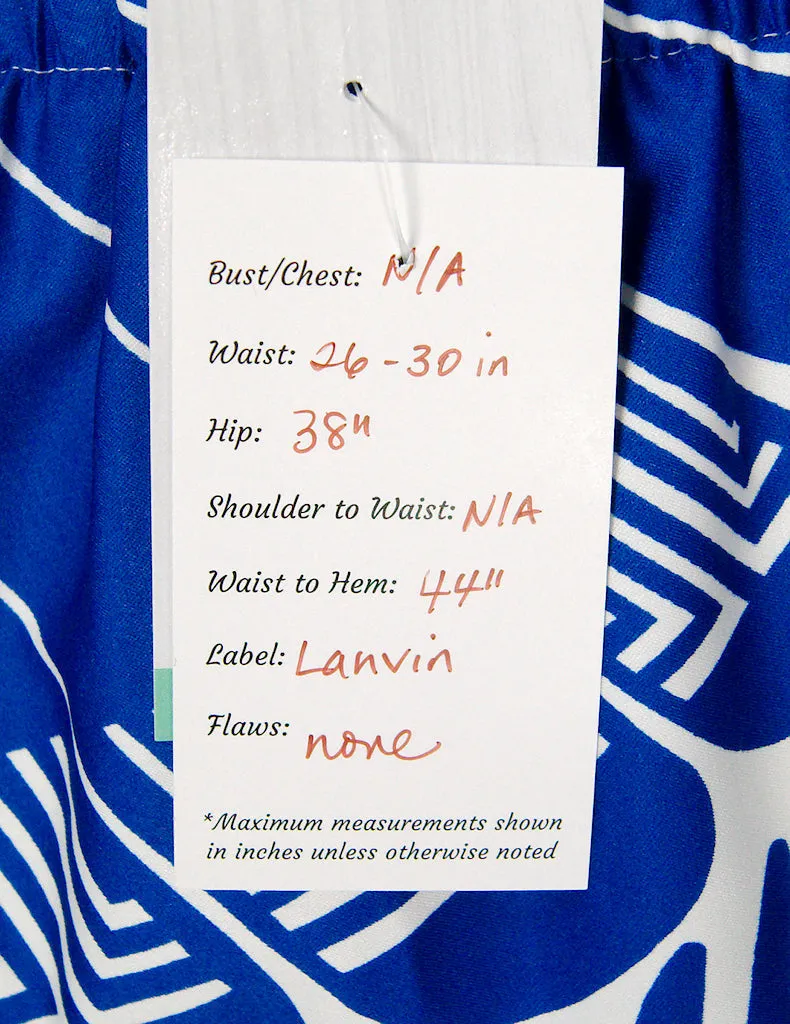 Bust/Chest: N/A
Waist: 26-30 in
Hip: 38"
Shoulder to Waist: N/A
Waist to Hem: 44"
Label: Lanvin
Flaws: none
*Maximum measurements shown
in inches unless otherwise noted